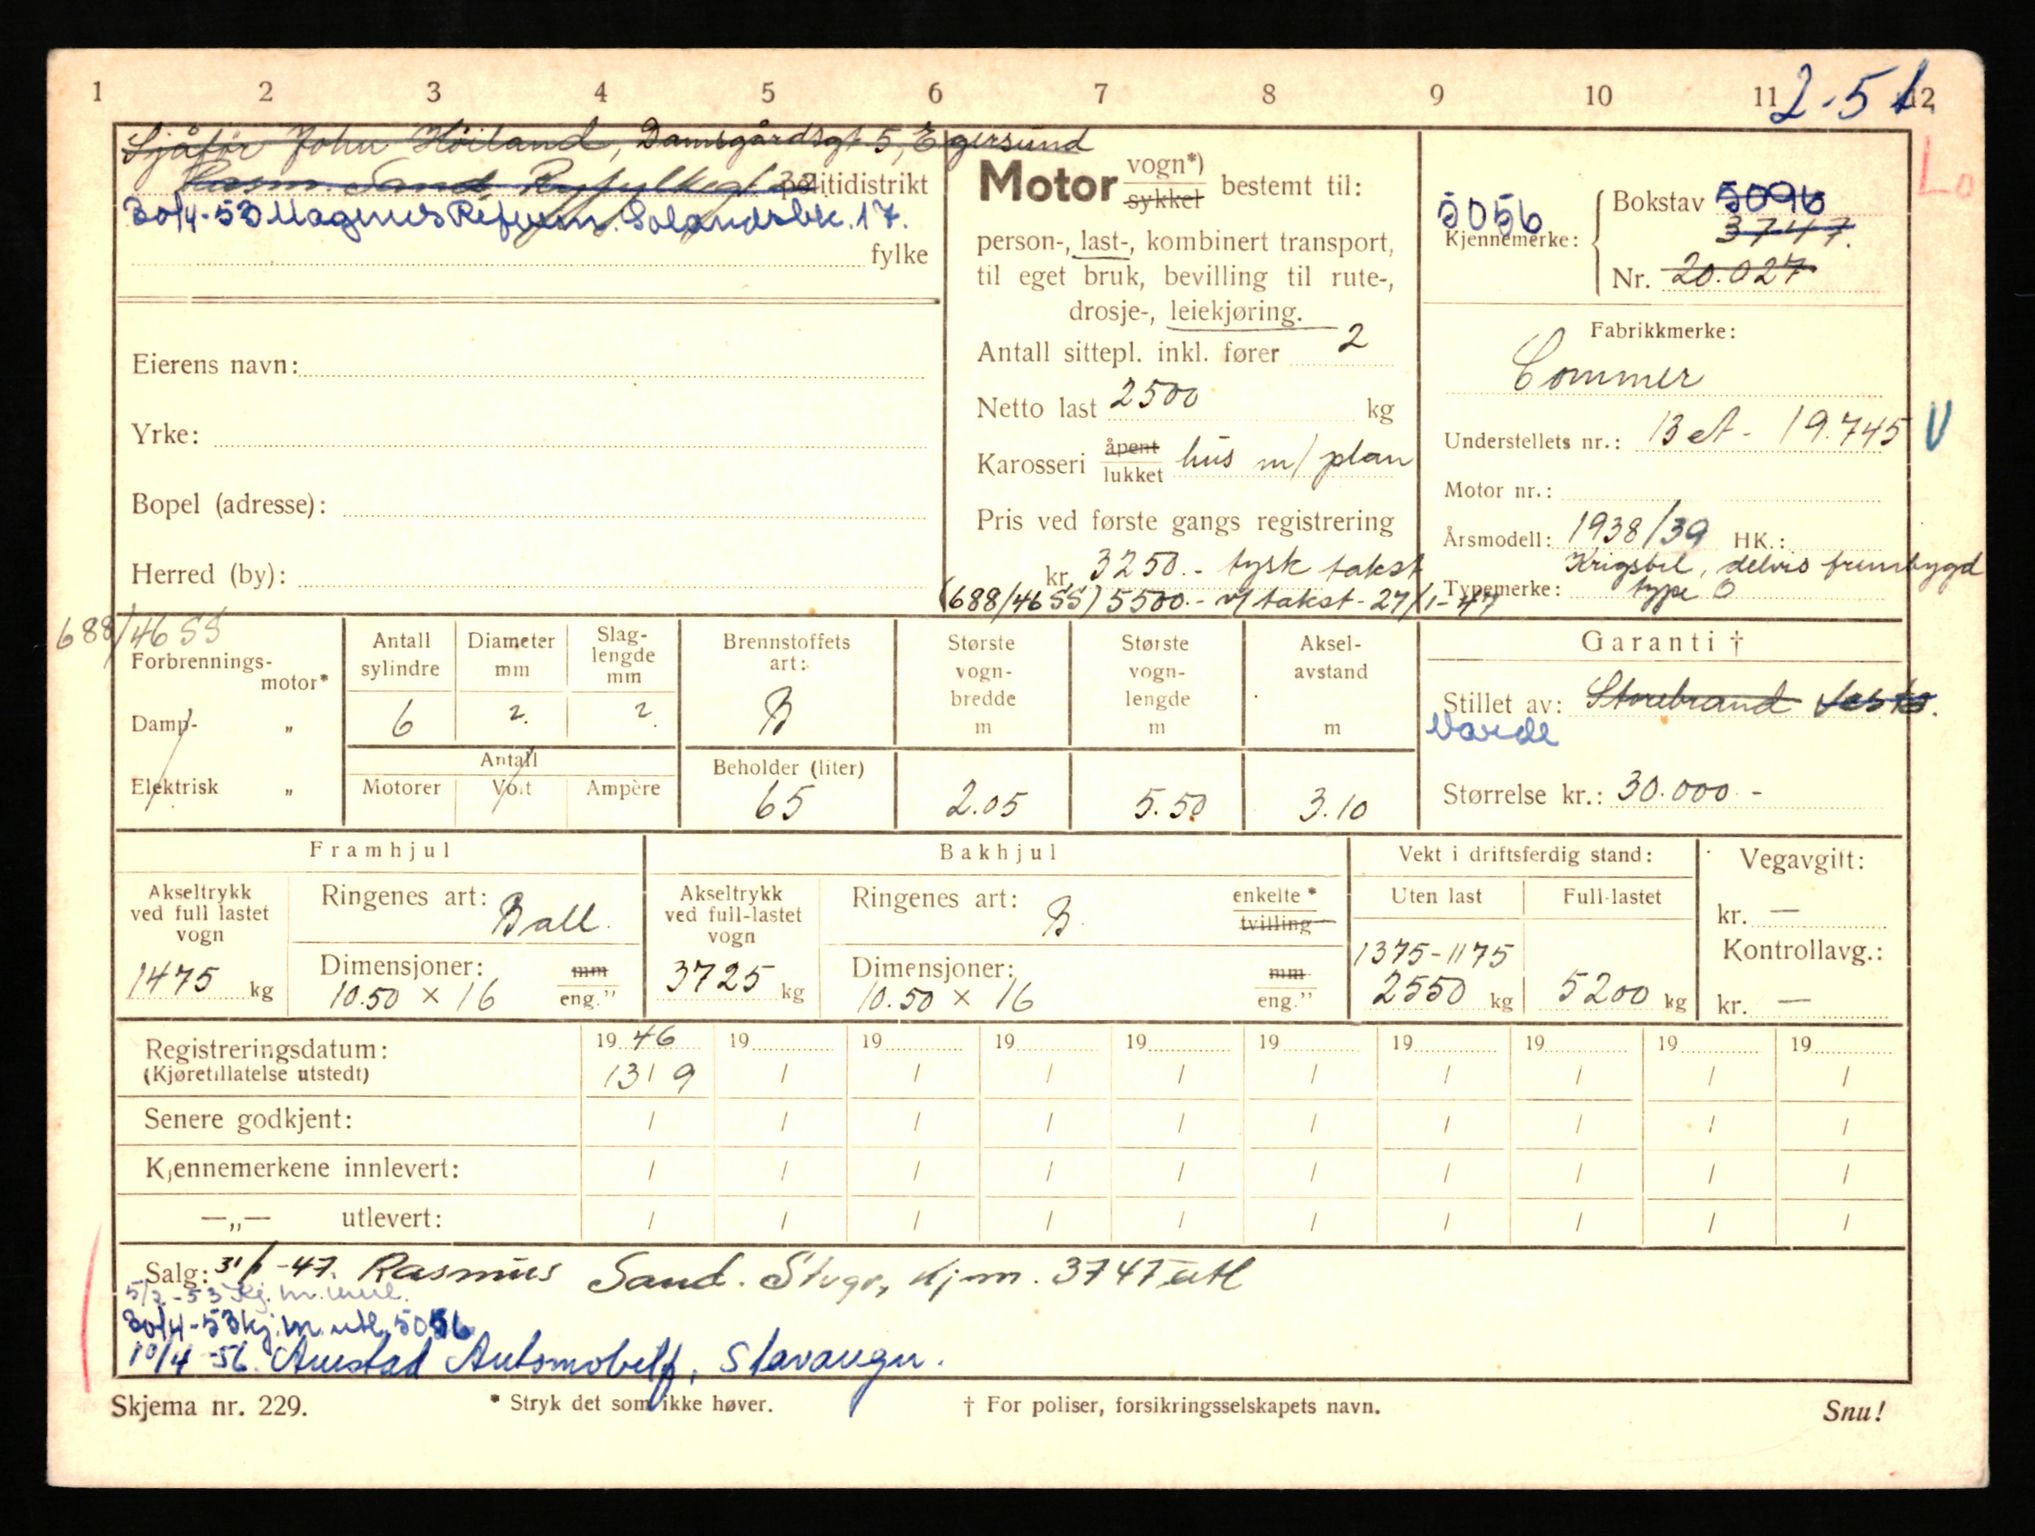 1 2 3 4 5 6 7 8 9 10 11 12
2-51
Sjåfør John Höiland, Damsgårdsgt 5, Egersund
Rasm. Sand Ryfylkegt 32 politidistrikt
30/4-53 Magnus Solandsbk. 17.
fylke
Eierens navn:
Yrke:
Bopel (adresse):
Herred (by):
Motor vogn*) sykkel bestemt til:
person-, last-, kombinert transport,
til eget bruk, bevilling til rute-,
drosje-, leiekjøring.
Antall sittepl. inkl. fører 2
Netto last 2500 kg
Karosseri åpent lukket hus m/ plan
Pris ved første gangs registrering
kr. 3250.- tysk takst
(688/46 SS) 5500.- v/ takst - 27/1-47
5056
Kjennemerke:
Bokstav 5096
3747.
Nr. 20.027
Lo
Fabrikkmerke:
Commer
Understellets nr.: 13 - 19.745 V
Motor nr.:
Årsmodell: 1938/39 HK.:
Krigsbil, delvis frembygd
Typemerke: type O
688/46 SS
Forbrenningsmotor*
Damp- „
Elektrisk „
Antall sylindre
6
Diameter mm
2.
Slaglengde mm
2.
Antall
Motorer Volt Ampère
Brennstoffets art:
B
Beholder (liter)
65
Største vognbredde m
2.05
Største vognlengde m
5.50
Akselavstand m
3.10
Garanti †
Stillet av: Storebrand
Varde
Størrelse kr.: 30.000 -
Framhjul
Akseltrykk ved full lastet vogn
1475 kg
Ringenes art: Ball.
Dimensjoner: mm
10.50 × 16 eng."
Bakhjul
Akseltrykk ved full-lastet vogn
3725 kg
Ringenes art: B. enkelte * tvilling
Dimensjoner: mm
10.50 × 16 eng."
Vekt i driftsferdig stand:
Uten last Full-lastet
1375-1175
2550 kg 5200 kg
Vegavgift:
kr. —
Kontrollavg.:
kr. —
Registreringsdatum: 19 46 19 19 19 19 19 19 19 19 19
(Kjøretillatelse utstedt) 13/9 / / / / / / / / /
Senere godkjent: / / / / / / / / / /
Kjennemerkene innlevert: / / / / / / / / / /
—„— utlevert: / / / / / / / / / /
Salg: 31/1-47. Rasmus Sand. Stvgr, Kjm. 3747 utl
5/2-53 Kj. m. innl.
30/4-53 kj. m. utl. 5056
10/4-56. Austad Automobilf., Stavanger.
Skjema nr. 229. * Stryk det som ikke høver. † For poliser, forsikringsselskapets navn. Snu!